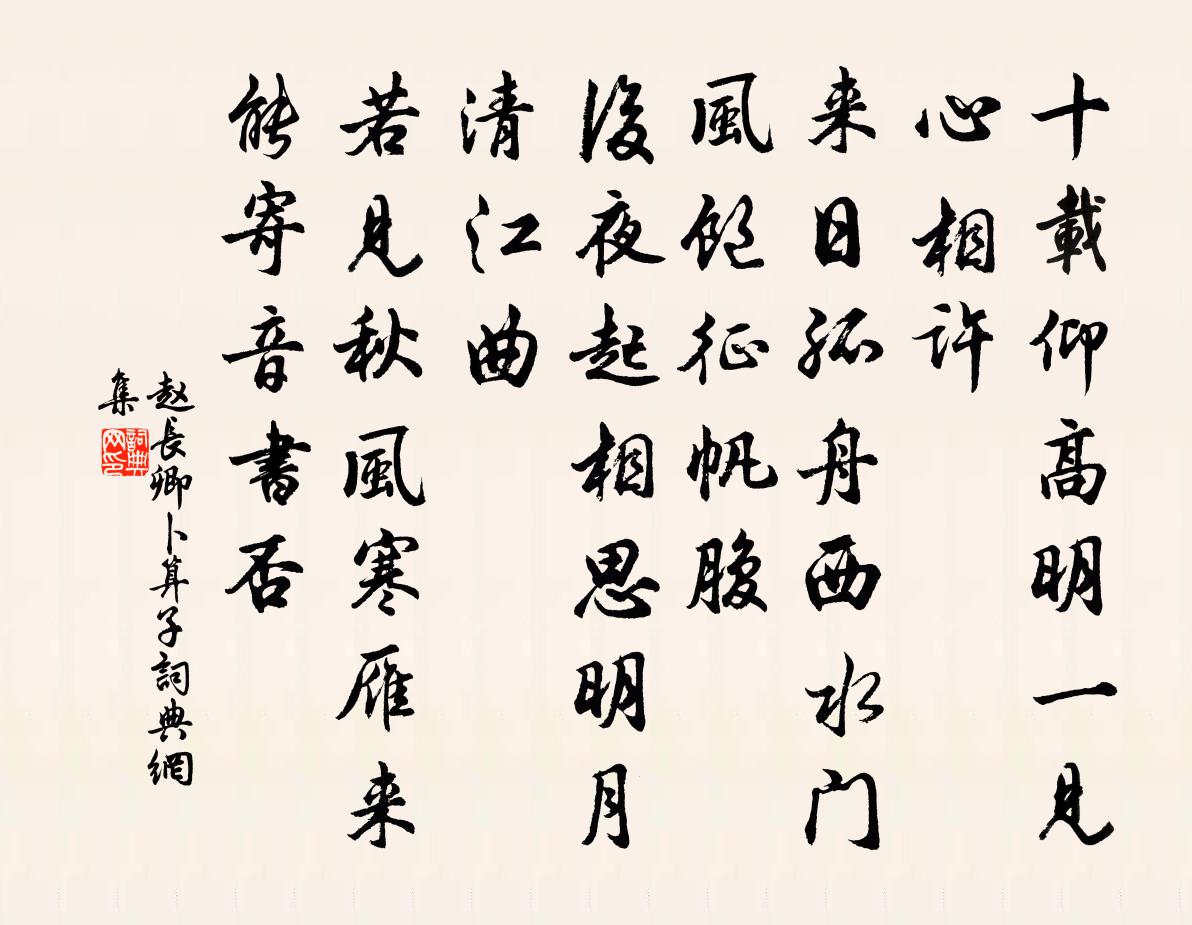 十載仰高明一見
心相許
来日孤舟西水门
風飽征帆腹
後夜起相思明月
清江曲
若見秋風寒雁来
能寄音書否
赵長卿卜算子詞典網
集
詞典
网印